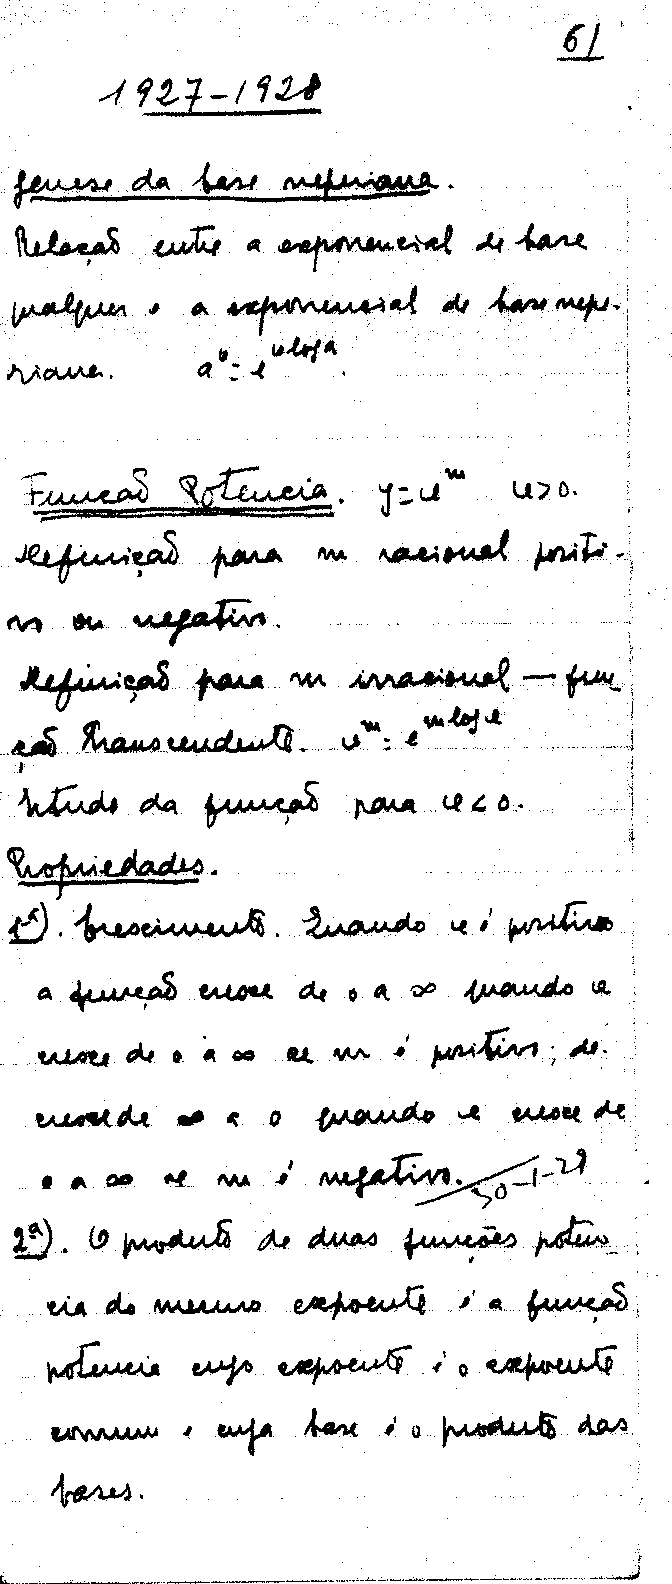 61
1927-1928
Genese da base neperiana.
Relação entre a exponencial de base
qualquer e a exponencial de base nepe-
riana. a^u = e^{u log a}.
Função Potencia. y = u^m u > 0.
Definição para m racional positi-
vo ou negativo.
Definição para m irracional — fun
ção transcendente. u^m = e^{m log u}
Estudo da função para u < 0.
Propriedades.
1ª). Crescimento. Quando u é positivo
a função cresce de 0 a ∞ quando u
cresce de 0 a ∞ se m é positivo; de-
cresce de ∞ a 0 quando u cresce de
0 a ∞ se m é negativo. 30-1-28
2ª). O produto de duas funções poten
cia do mesmo expoente é a função
potencia cujo expoente é o expoente
comum e cuja base é o produto das
bases.